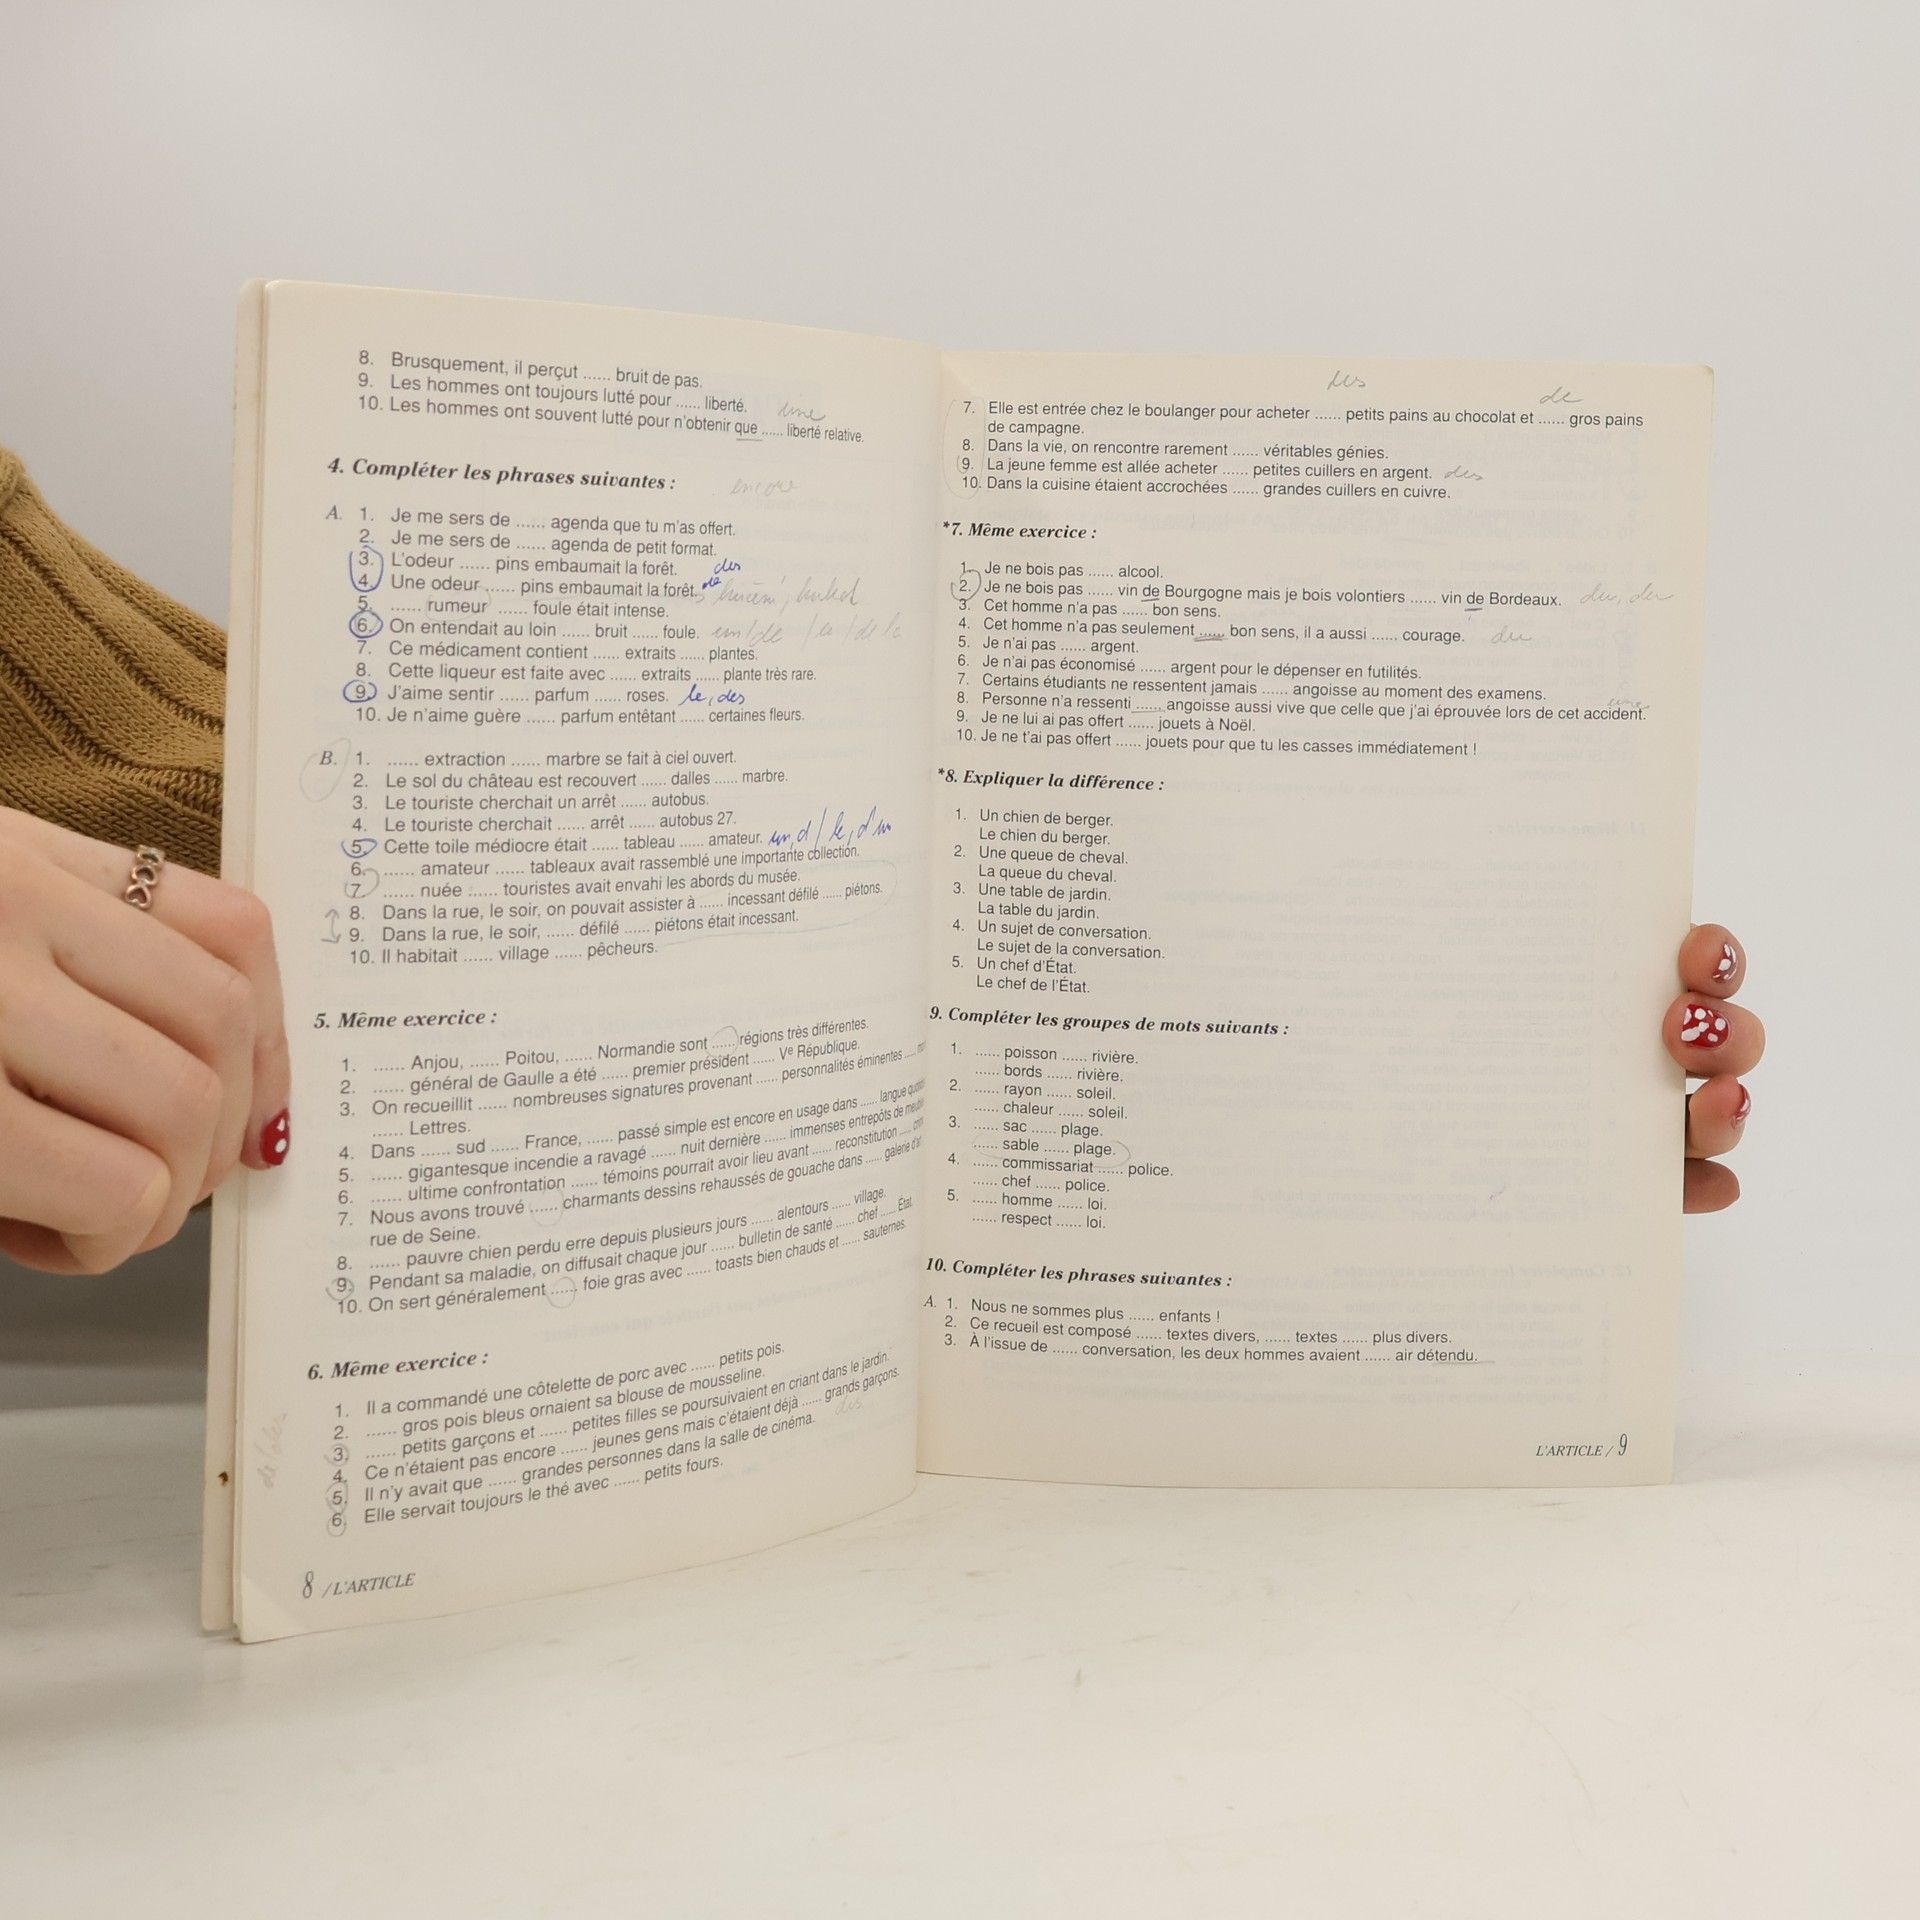 8. Brusquement, il perçut ...... bruit de pas.
9. Les hommes ont toujours lutté pour ...... liberté.
10. Les hommes ont souvent lutté pour n'obtenir que ...... liberté relative.
une
4. Compléter les phrases suivantes :
encore
A. 1. Je me sers de ...... agenda que tu m'as offert.
2. Je me sers de ...... agenda de petit format.
3. L'odeur ...... pins embaumait la forêt. des
4. Une odeur ...... pins embaumait la forêt. de
5. ...... rumeur ...... foule était intense.
6. On entendait au loin ...... bruit ...... foule. un/de /le/de la
7. Ce médicament contient ...... extraits ...... plantes.
8. Cette liqueur est faite avec ...... extraits ...... plante très rare.
9. J'aime sentir ...... parfum ...... roses. le, des
10. Je n'aime guère ...... parfum entêtant ...... certaines fleurs.
B. 1. ...... extraction ...... marbre se fait à ciel ouvert.
2. Le sol du château est recouvert ...... dalles ...... marbre.
3. Le touriste cherchait un arrêt ...... autobus.
4. Le touriste cherchait ...... arrêt ...... autobus 27.
5. Cette toile médiocre était ...... tableau ...... amateur. un, d / le, d'un
6. ...... amateur ...... tableaux avait rassemblé une importante collection.
7. ...... nuée ...... touristes avait envahi les abords du musée.
8. Dans la rue, le soir, on pouvait assister à ...... incessant défilé ...... piétons.
9. Dans la rue, le soir, ...... défilé ...... piétons était incessant.
10. Il habitait ...... village ...... pêcheurs.
5. Même exercice :
1. ...... Anjou, ...... Poitou, ...... Normandie sont ...... régions très différentes.
2. ...... général de Gaulle a été ...... premier président ...... Ve République.
3. On recueillit ...... nombreuses signatures provenant ...... personnalités éminentes ......
...... Lettres.
4. Dans ...... sud ...... France, ...... passé simple est encore en usage dans ...... langue
5. ...... gigantesque incendie a ravagé ...... nuit dernière ...... immenses entrepôts de
6. ...... ultime confrontation ...... témoins pourrait avoir lieu avant ...... reconstitution ......
7. Nous avons trouvé ...... charmants dessins rehaussés de gouache dans ...... galerie d'art
rue de Seine.
8. ...... pauvre chien perdu erre depuis plusieurs jours ...... alentours ...... village.
9. Pendant sa maladie, on diffusait chaque jour ...... bulletin de santé ...... chef ...... État.
10. On sert généralement ...... foie gras avec ...... toasts bien chauds et ...... sauternes.
6. Même exercice :
1. Il a commandé une côtelette de porc avec ...... petits pois.
2. ...... gros pois bleus ornaient sa blouse de mousseline.
3. ...... petits garçons et ...... petites filles se poursuivaient en criant dans le jardin.
4. Ce n'étaient pas encore ...... jeunes gens mais c'étaient déjà ...... grands garçons.
des
5. Il n'y avait que ...... grandes personnes dans la salle de cinéma.
6. Elle servait toujours le thé avec ...... petits fours.
8 / L'ARTICLE
des
de
7. Elle est entrée chez le boulanger pour acheter ...... petits pains au chocolat et ...... gros pains
de campagne.
8. Dans la vie, on rencontre rarement ...... véritables génies.
9. La jeune femme est allée acheter ...... petites cuillers en argent. des
10. Dans la cuisine étaient accrochées ...... grandes cuillers en cuivre.
*7. Même exercice :
1. Je ne bois pas ...... alcool.
2. Je ne bois pas ...... vin de Bourgogne mais je bois volontiers ...... vin de Bordeaux. du, du
3. Cet homme n'a pas ...... bon sens.
4. Cet homme n'a pas seulement ...... bon sens, il a aussi ...... courage. du
5. Je n'ai pas ...... argent.
6. Je n'ai pas économisé ...... argent pour le dépenser en futilités.
7. Certains étudiants ne ressentent jamais ...... angoisse au moment des examens.
une
8. Personne n'a ressenti ...... angoisse aussi vive que celle que j'ai éprouvée lors de cet accident.
9. Je ne lui ai pas offert ...... jouets à Noël.
10. Je ne t'ai pas offert ...... jouets pour que tu les casses immédiatement !
*8. Expliquer la différence :
1. Un chien de berger.
Le chien du berger.
2. Une queue de cheval.
La queue du cheval.
3. Une table de jardin.
La table du jardin.
4. Un sujet de conversation.
Le sujet de la conversation.
5. Un chef d'État.
Le chef de l'État.
9. Compléter les groupes de mots suivants :
1. ...... poisson ...... rivière.
...... bords ...... rivière.
2. ...... rayon ...... soleil.
...... chaleur ...... soleil.
3. ...... sac ...... plage.
...... sable ...... plage.
4. ...... commissariat ...... police.
...... chef ...... police.
5. ...... homme ...... loi.
...... respect ...... loi.
10. Compléter les phrases suivantes :
A. 1. Nous ne sommes plus ...... enfants !
2. Ce recueil est composé ...... textes divers, ...... textes ...... plus divers.
3. À l'issue de ...... conversation, les deux hommes avaient ...... air détendu.
L'ARTICLE / 9